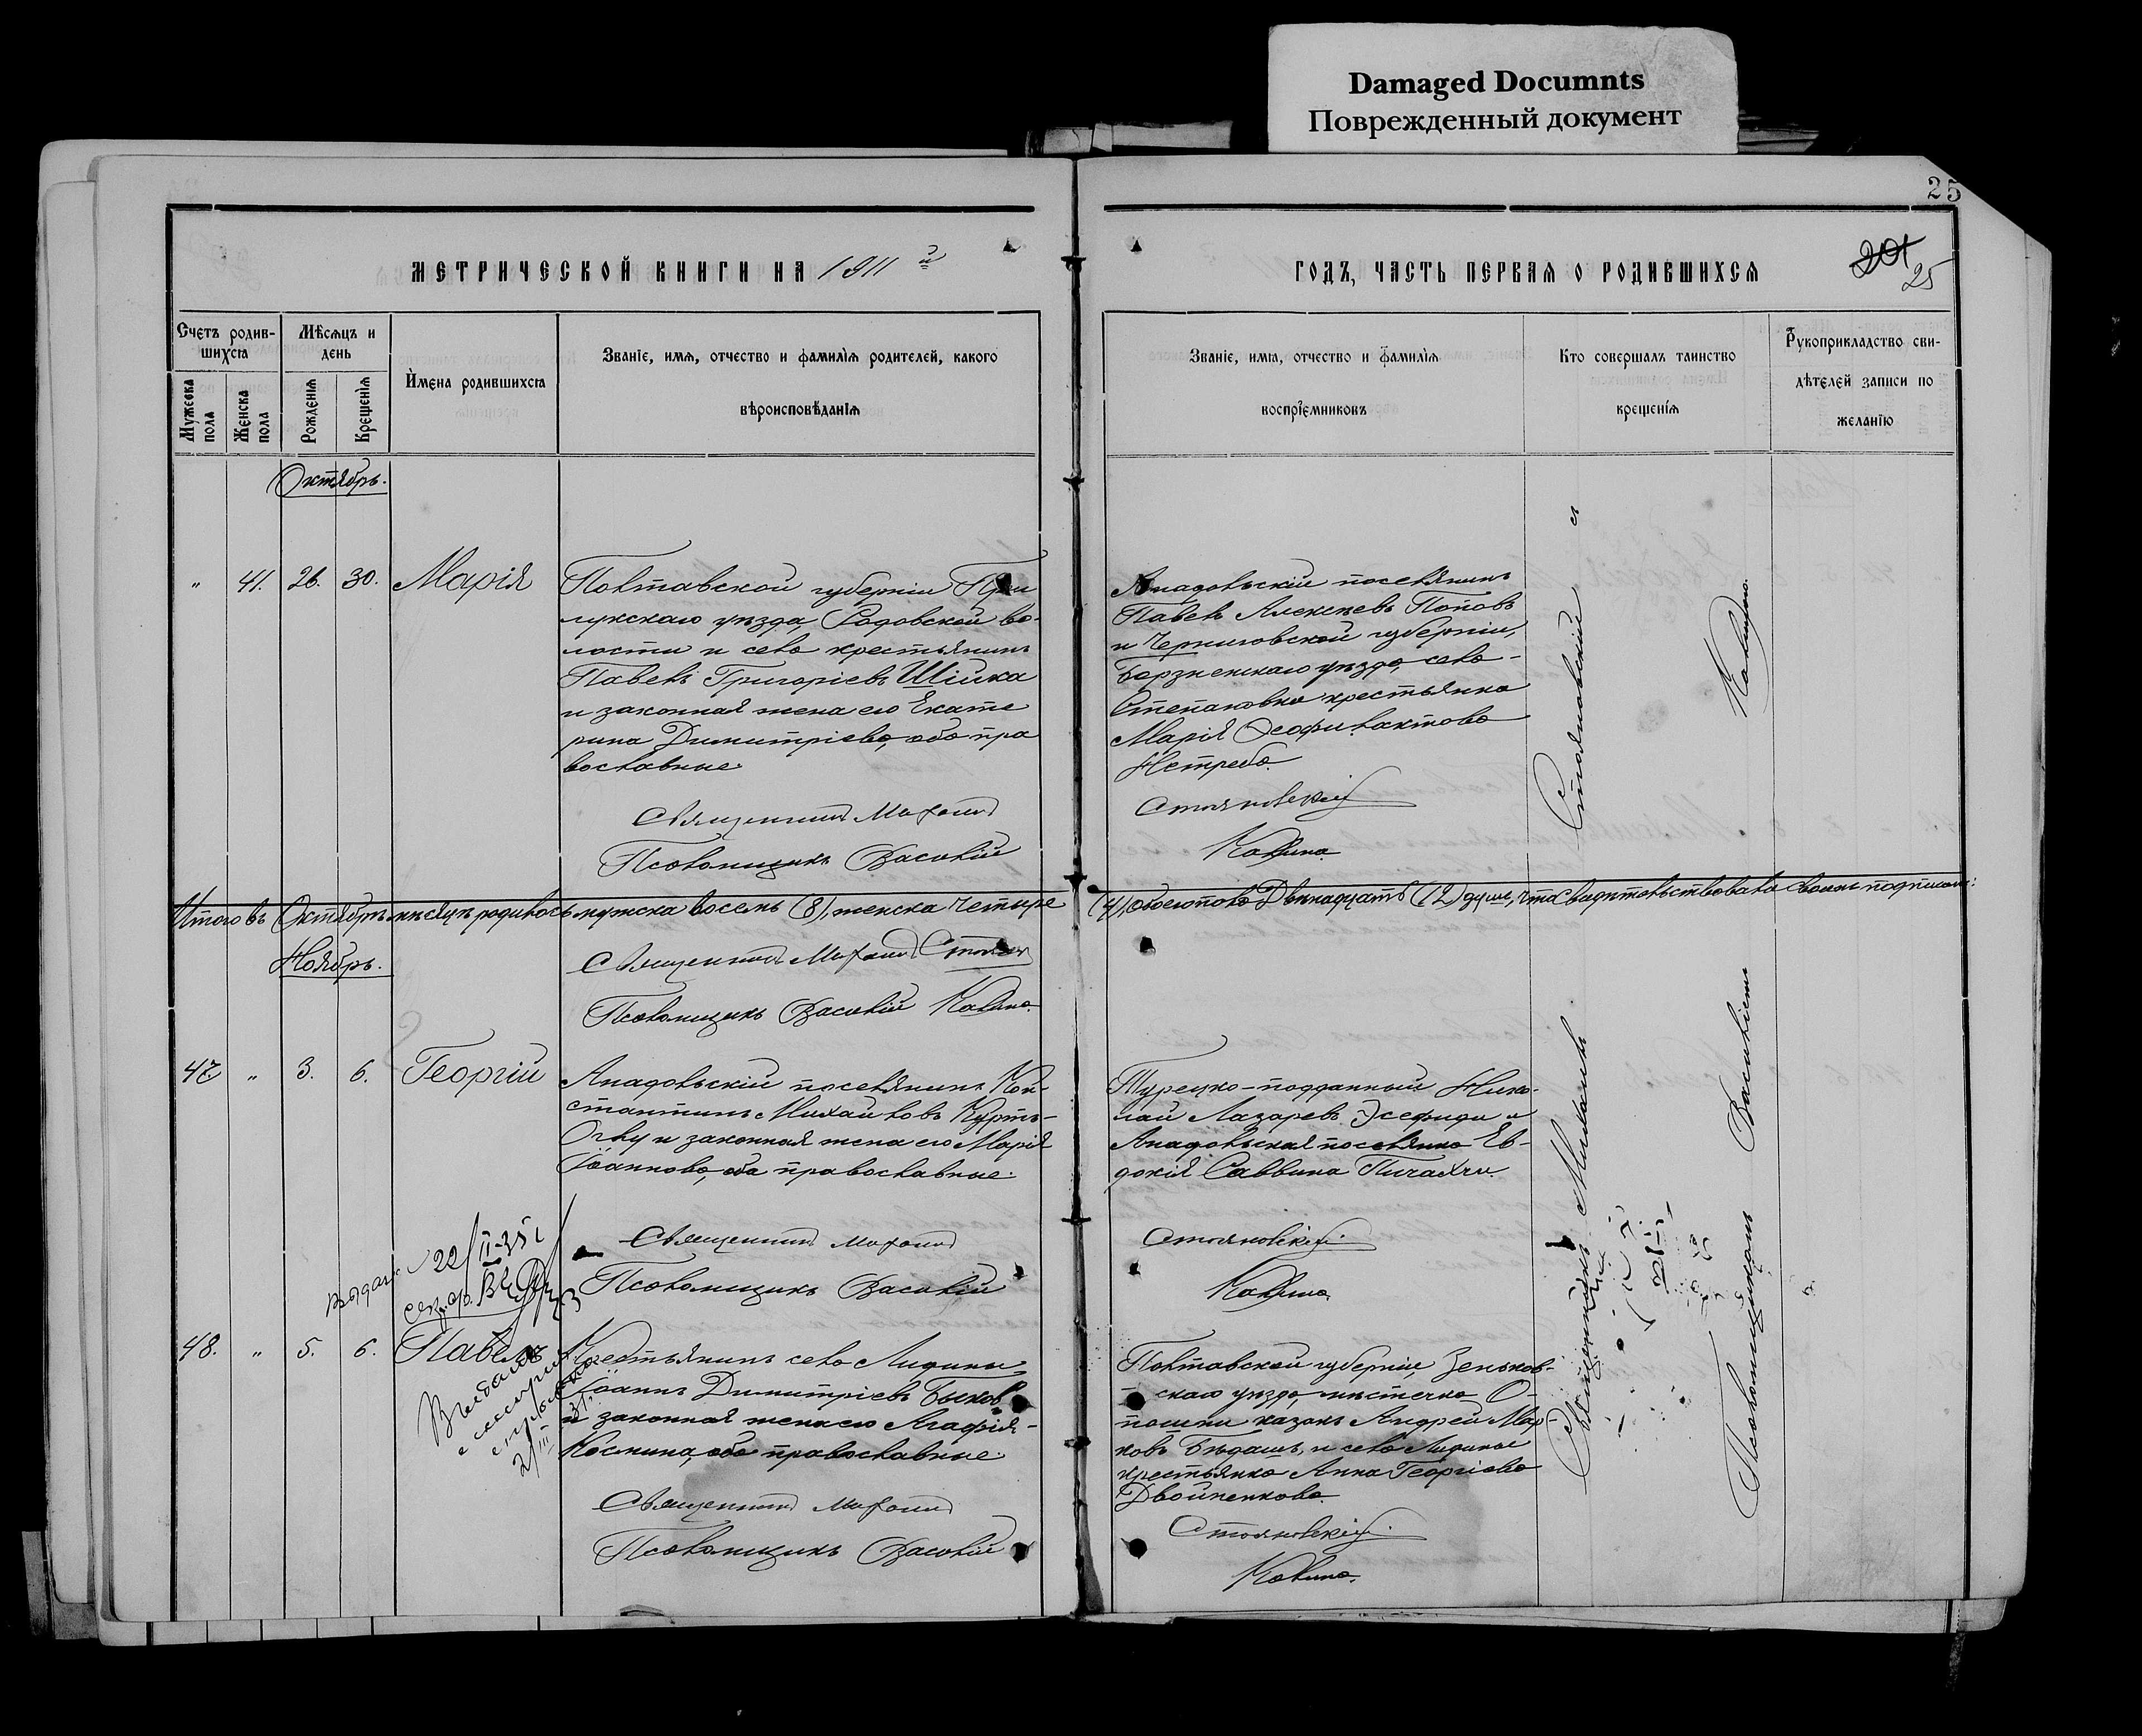 Damaged Documnts
Поврежденный документ
25
МЕТРИЧЕСКОЙ КНИГИ НА 1911 й
ГОДЪ, ЧАСТЬ ПЕРВАЯ О РОДИВШИХСЯ
201
25
Счетъ родив-
шихся
Мѣсяцъ и
день
Мужеска
пола
Женска
пола
Рожденія
Крещенія
Имена родившихся
Званіе, имя, отчество и фамилія родителей, какого
вѣроисповѣданія
Званіе, имя, отчество и фамилія
воспріемниковъ
Кто совершалъ таинство
крещенія
Рукоприкладство сви-
дѣтелей записи по
желанію
Октябрь.
" 41. 26. 30. Марія
Полтавской губерніи При
лукскаго уѣзда, волости и села крестьянинъ
Павелъ Григоріевъ Шійка
и законная жена его Екате
рина Димитріева, оба пра
вославные.
Священникъ
Псаломщикъ Василій
Анадольскій поселянинъ
Павелъ Алексѣевъ Поповъ
и Черниговской губерніи,
Борзненскаго уѣзда, села
Степановка крестьянка
Марія Феофилактова
Нетреба.
Стояновскій
Калина.
Итого въ Октябрѣ мѣсяцѣ родилось мужска восемь (8), женска четыре (4), обоего пола Двѣнадцать (12) душъ, что свидѣтельствовали своимъ подписомъ:
Ноябрь.
Священникъ
Псаломщикъ Василій Калина.
47 " 3. 6. Георгій
Анадольскій поселянинъ Кон-
стантинъ Михайловъ Куртъ-
Оглу и законная жена его Марія
Іоаннова, оба православные.
Священникъ
Псаломщикъ Василій
Турецко-подданный Нико-
лай Лазаревъ и
Анадольская поселянка Ев-
докія Саввина
Стояновскій.
Калина.
22/II-35
48. " 5. 6. Павелъ
Крестьянинъ села
Іоаннъ Димитріевъ Быковъ
и законная жена его Агафія
Космина, оба православные.
Священникъ
Псаломщикъ Василій
Полтавской губерніи, Зеньков-
скаго уѣзда, мѣстечка О-
пошни казакъ Андрей Мар
ковъ и села
крестьянка Анна Георгіева
Двойненкова.
Стояновскій.
Калина.
Священникъ Стояновскій съ
Псаломщикомъ Калина.